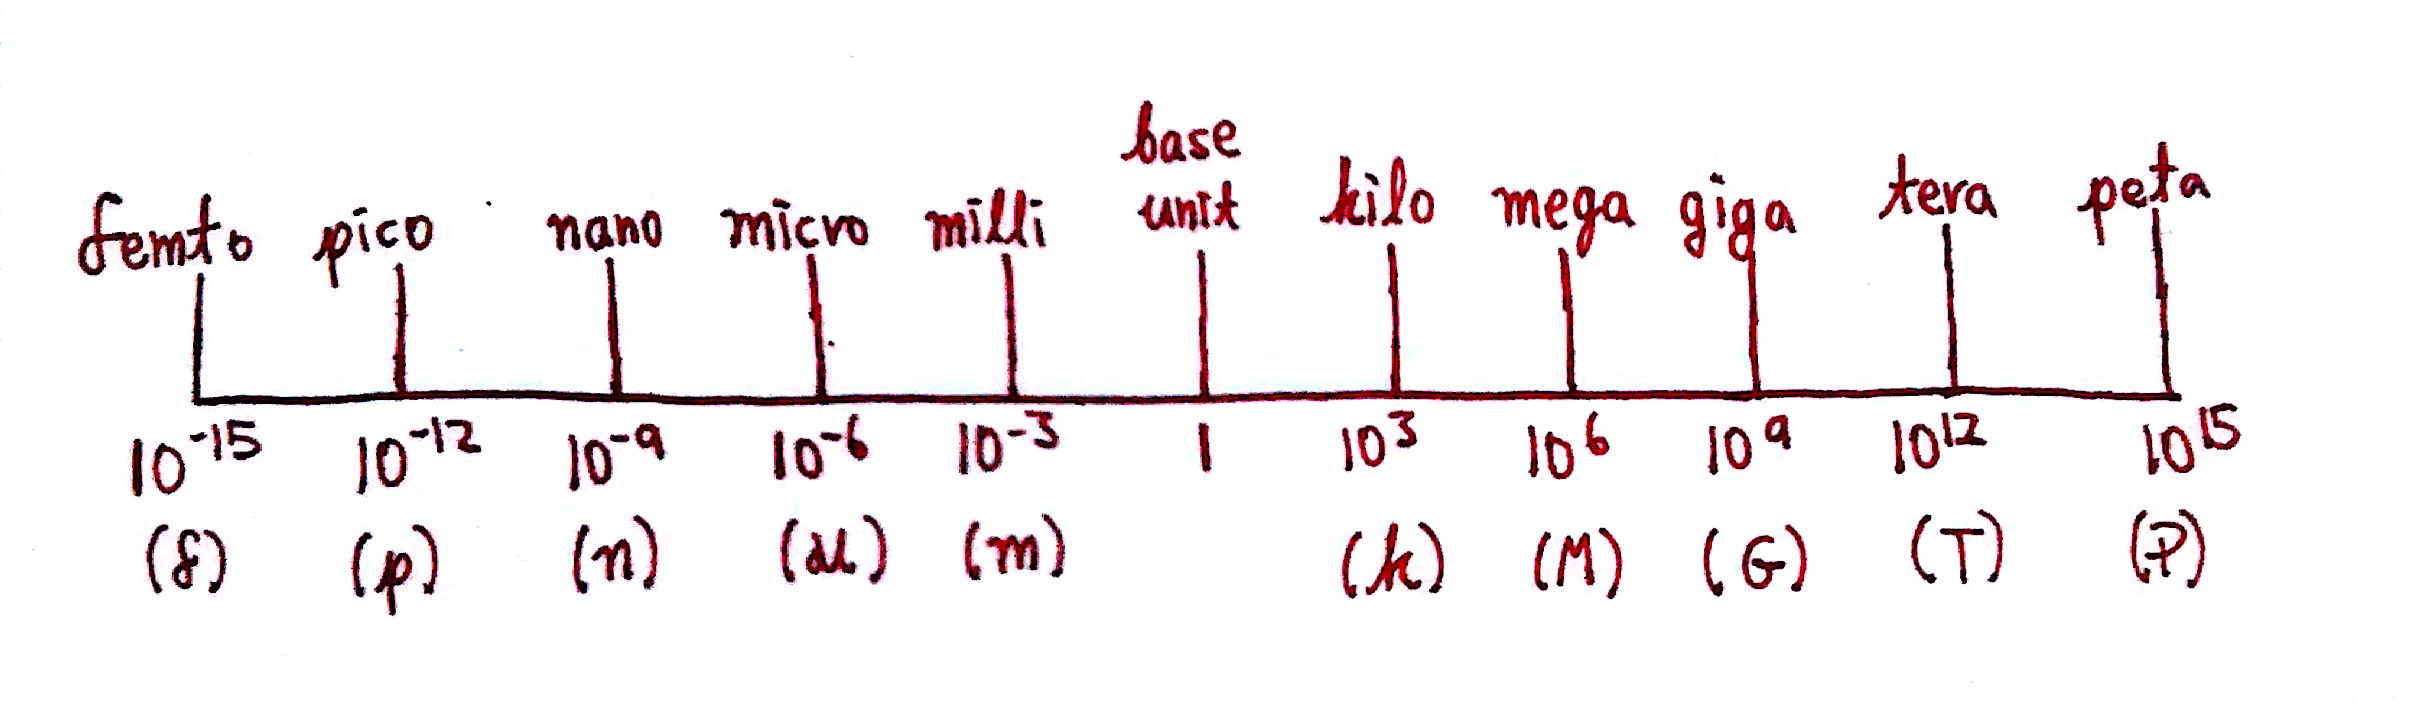 femto pico nano micro milli base unit kilo mega giga tera peta
10⁻¹⁵ 10⁻¹² 10⁻⁹ 10⁻⁶ 10⁻³ 1 10³ 10⁶ 10⁹ 10¹² 10¹⁵
(f) (p) (n) (μ) (m) (k) (M) (G) (T) (P)